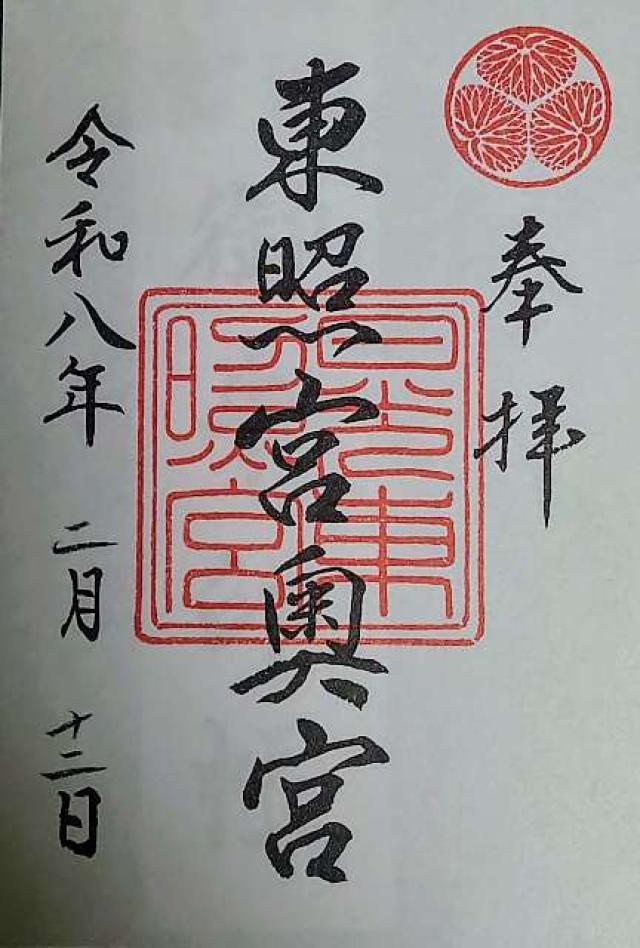 奉拝
東照宮奥宮
日光東照宮
令和八年 二月 十二日